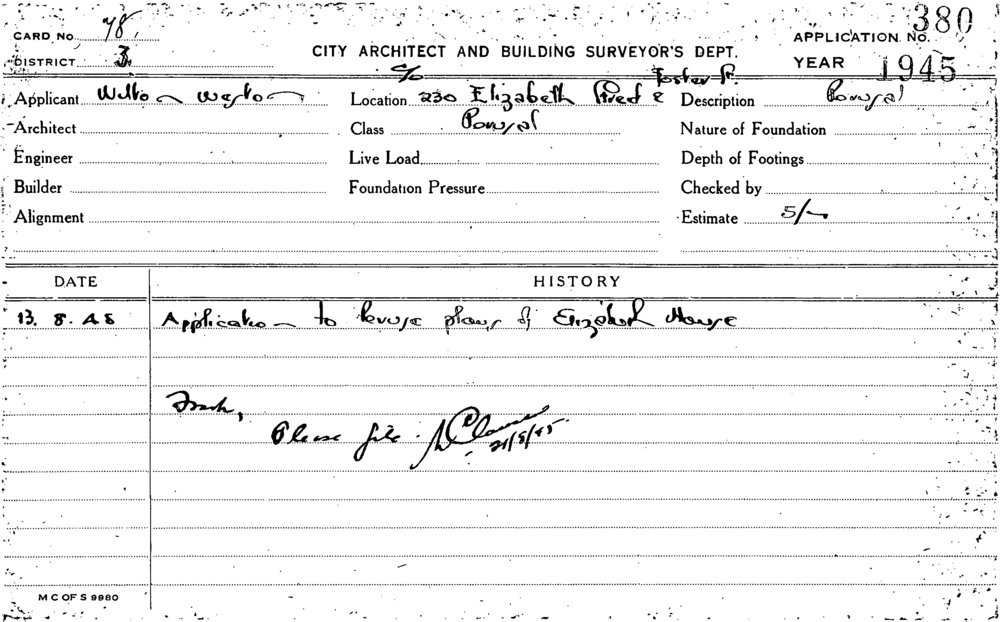 CARD No. 78.
380
APPLICATION No.
DISTRICT 3.
CITY ARCHITECT AND BUILDING SURVEYOR'S DEPT.
YEAR 1945
c/o Foster St.
Applicant Wilton Weston Location 230 Elizabeth Street & Description Perusal
Architect Class Perusal Nature of Foundation
Engineer Live Load Depth of Footings
Builder Foundation Pressure Checked by
Alignment Estimate 5/-
DATE HISTORY
13. 8. 45 Application to peruse plans of Elizabeth House
Please file. 21/8/45.
M C OF S 9980